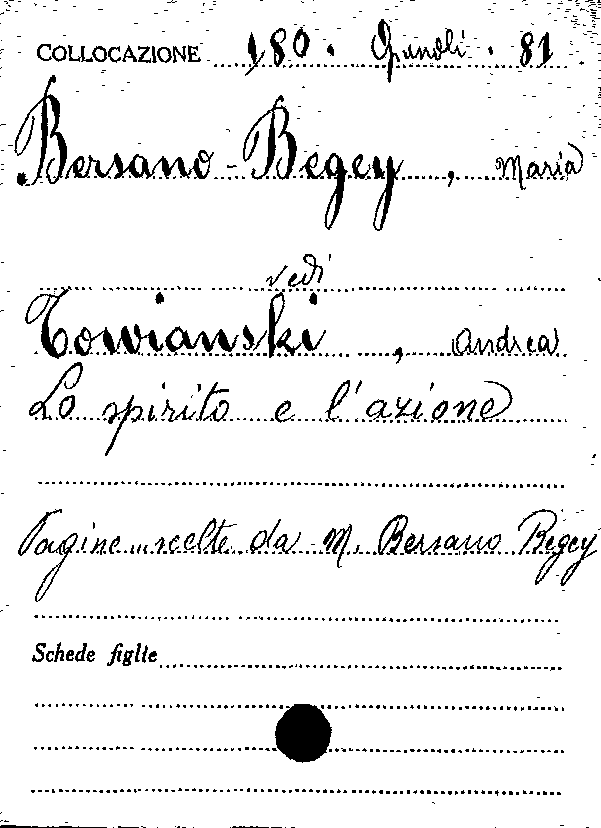 COLLOCAZIONE 180. Gunoli. 81
Bersano-Begey, Maria
vedi
Towianski, Andrea
Lo spirito e l'azione
Pagine scelte da M. Bersano Begey
Schede figlie